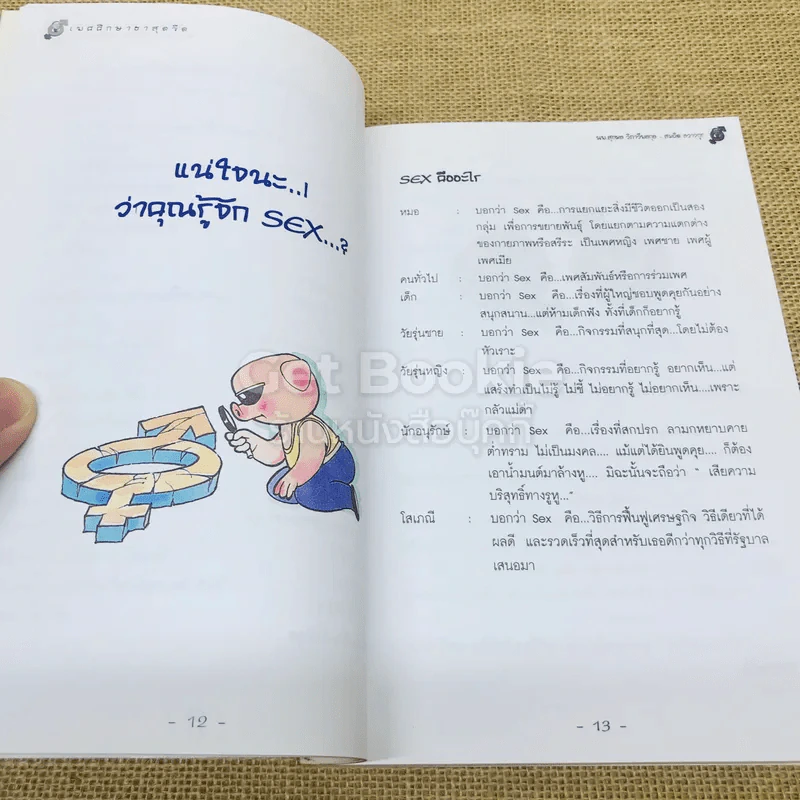 เพศศึกษาธาตุอวิด
แน่ใจนะ..!
ว่าคุณรู้จัก SEX...?
- 12 -
SEX คืออะไร
หมอ : บอกว่า Sex คือ...การแยกแยะสิ่งมีชีวิตออกเป็นสอง
กลุ่ม เพื่อการขยายพันธุ์ โดยแยกตามความแตกต่าง
ของกายภาพหรือสรีระ เป็นเพศหญิง เพศชาย เพศผู้
เพศเมีย
คนทั่วไป : บอกว่า Sex คือ...เพศสัมพันธ์หรือการร่วมเพศ
เด็ก : บอกว่า Sex คือ...เรื่องที่ผู้ใหญ่ชอบพูดคุยกันอย่าง
สนุกสนาน...แต่ห้ามเด็กฟัง ทั้งที่เด็กก็อยากรู้
วัยรุ่นชาย : บอกว่า Sex คือ...กิจกรรมที่สนุกที่สุด...โดยไม่ต้อง
หัวเราะ
วัยรุ่นหญิง : บอกว่า Sex คือ...กิจกรรมที่อยากรู้ อยากเห็น...แต่
แสร้งทำเป็นไม่รู้ ไม่ชี้ ไม่อยากรู้ ไม่อยากเห็น....เพราะ
กลัวแม่ด่า
นักอนุรักษ์ : บอกว่า Sex คือ...เรื่องที่สกปรก ลามกหยาบคาย
ต่ำทราม ไม่เป็นมงคล.... แม้แต่ได้ยินพูดคุย.... ก็ต้อง
เอาน้ำมนต์มาล้างหู.... มิฉะนั้นจะถือว่า " เสียความ
บริสุทธิ์ทางรูหู..."
โสเภณี : บอกว่า Sex คือ...วิธีการฟื้นฟูเศรษฐกิจ วิธีเดียวที่ได้
ผลดี และรวดเร็วที่สุดสำหรับเธอดีกว่าทุกวิธีที่รัฐบาล
เสนอมา
- 13 -
Get Bookie
ร้านหนังสือบุ๊คกี้